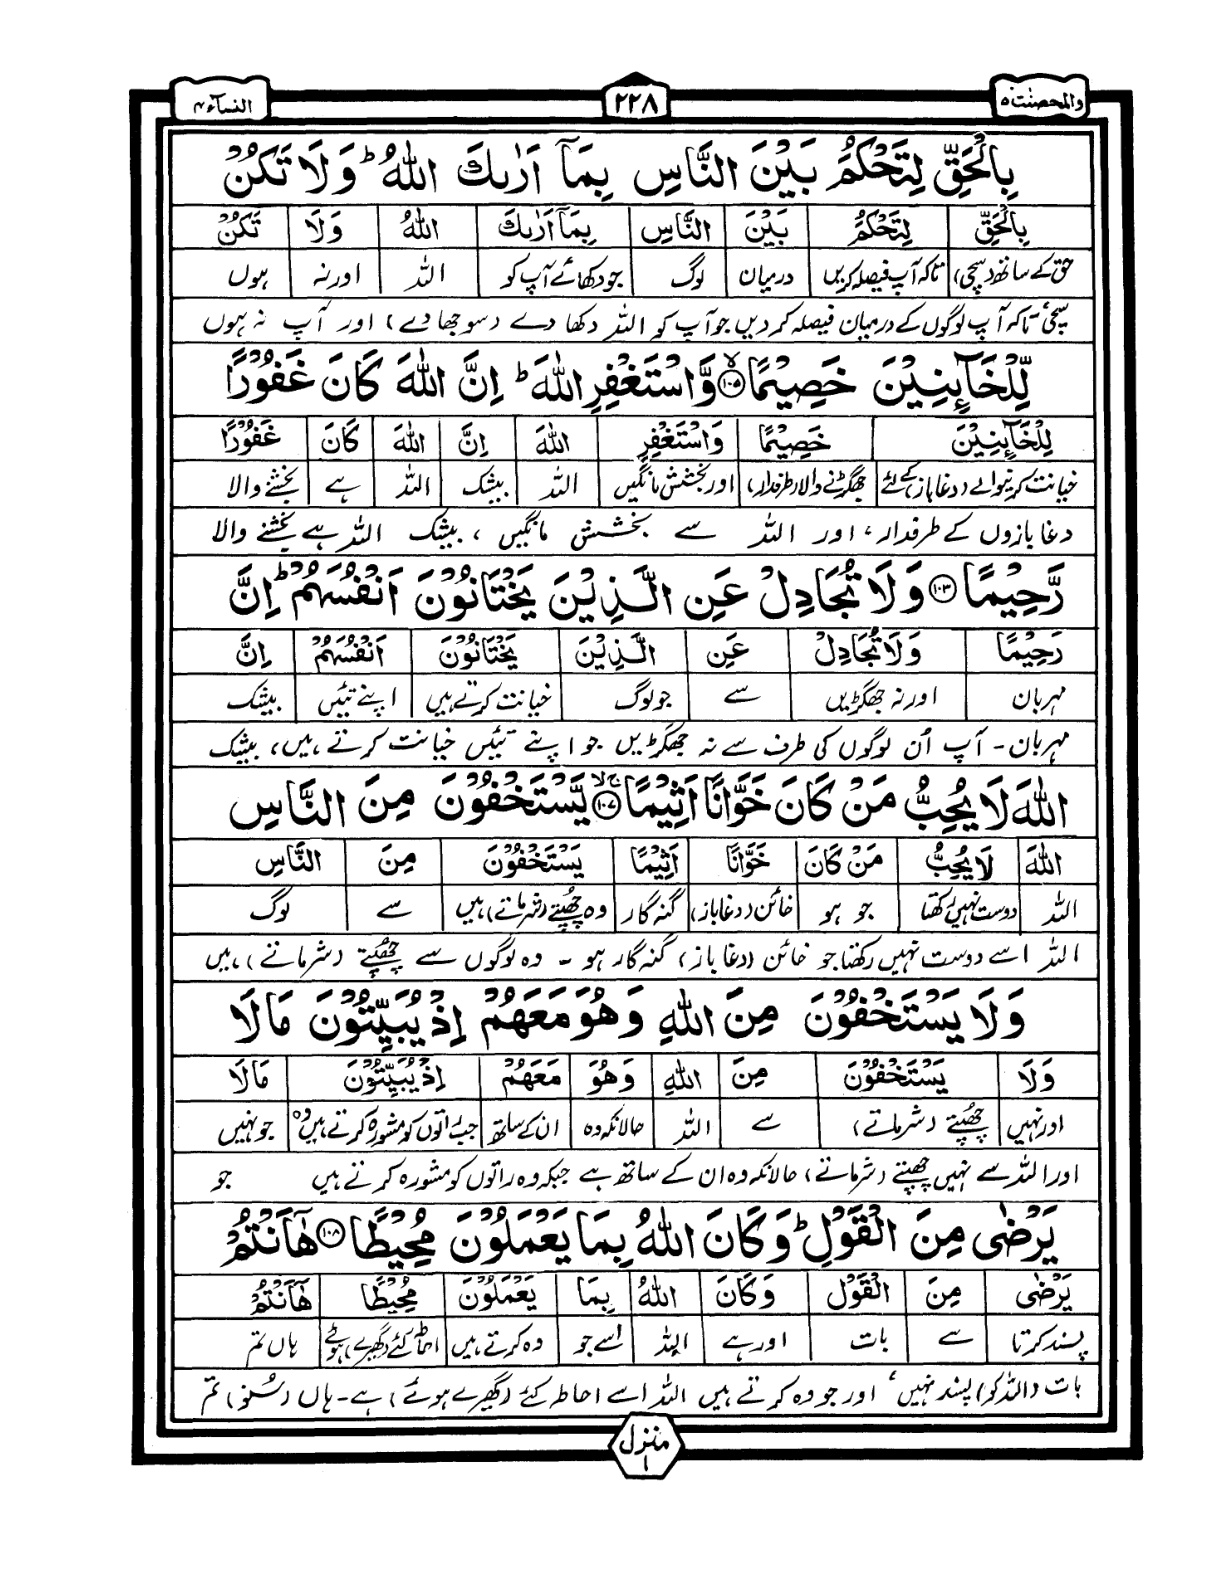 والمحصنٰت ۵
۲۲۸
النسآء ۴
بِالْحَقِّ لِتَحْكُمَ بَيْنَ النَّاسِ بِمَآ اَرٰىكَ اللّٰهُ ؕ وَلَا تَكُنْ
بِالْحَقِّ لِتَحْكُمَ بَيْنَ النَّاسِ بِمَآ اَرٰىكَ اللّٰهُ وَلَا تَكُنْ
حق کے ساتھ (سچی) تاکہ آپ فیصلہ کریں درمیان لوگ جو دکھائے آپ کو اللہ اور نہ ہوں
سچی تاکہ آپ لوگوں کے درمیان فیصلہ کر دیں جو آپ کو اللہ دکھا دے (سوجھا دے) اور آپ نہ ہوں
لِّلْخَآئِنِيْنَ خَصِيْمًا ﴿۱۰۵﴾ۙ وَّاسْتَغْفِرِ اللّٰهَ ؕ اِنَّ اللّٰهَ كَانَ غَفُوْرًا
لِلْخَآئِنِيْنَ خَصِيْمًا وَاسْتَغْفِرِ اللّٰهَ اِنَّ اللّٰهَ كَانَ غَفُوْرًا
خیانت کرنیوالے (دغا باز) کےلئے جھگڑنے والا (طرفدار) اور بخشش مانگیں اللہ بیشک اللہ ہے بخشنے والا
دغا بازوں کے طرفدار، اور اللہ سے بخشش مانگیں، بیشک اللہ ہے بخشنے والا
رَّحِيْمًا ﴿۱۰۳﴾ وَلَا تُجَادِلْ عَنِ الَّذِيْنَ يَخْتَانُوْنَ اَنْفُسَهُمْ ؕ اِنَّ
رَحِيْمًا وَلَا تُجَادِلْ عَنِ الَّذِيْنَ يَخْتَانُوْنَ اَنْفُسَهُمْ اِنَّ
مہربان اور نہ جھگڑیں سے جو لوگ خیانت کرتے ہیں اپنے تئیں بیشک
مہربان۔ آپ اُن لوگوں کی طرف سے نہ جھگڑیں جو اپنے تئیں خیانت کرتے ہیں، بیشک
اللّٰهَ لَا يُحِبُّ مَنْ كَانَ خَوَّانًا اَثِيْمًا ﴿۱۰۷﴾ۚۙ يَّسْتَخْفُوْنَ مِنَ النَّاسِ
اللّٰهَ لَا يُحِبُّ مَنْ كَانَ خَوَّانًا اَثِيْمًا يَسْتَخْفُوْنَ مِنَ النَّاسِ
اللہ دوست نہیں رکھتا جو ہو خائن (دغا باز) گنہ گار وہ چھپتے (شرماتے) ہیں سے لوگ
اللہ اسے دوست نہیں رکھتا جو خائن (دغا باز) گنہ گار ہو ۔ وہ لوگوں سے چھپتے (شرماتے) ہیں
وَلَا يَسْتَخْفُوْنَ مِنَ اللّٰهِ وَهُوَ مَعَهُمْ اِذْ يُبَيِّتُوْنَ مَا لَا
وَلَا يَسْتَخْفُوْنَ مِنَ اللّٰهِ وَهُوَ مَعَهُمْ اِذْ يُبَيِّتُوْنَ مَا لَا
اور نہیں چھپتے (شرماتے) سے اللہ حالانکہ وہ ان کے ساتھ جب راتوں کو مشورہ کرتے ہیں وہ جو نہیں
اور اللہ سے نہیں چھپتے (شرماتے) حالانکہ وہ ان کے ساتھ ہے جبکہ وہ راتوں کو مشورہ کرتے ہیں جو
يَرْضٰى مِنَ الْقَوْلِ ؕ وَكَانَ اللّٰهُ بِمَا يَعْمَلُوْنَ مُحِيْطًا ﴿۱۰۸﴾ هٰٓاَنْتُمْ
يَرْضٰى مِنَ الْقَوْلِ وَكَانَ اللّٰهُ بِمَا يَعْمَلُوْنَ مُحِيْطًا هٰٓاَنْتُمْ
پسند کرتا سے بات اور ہے اللہ اسے جو وہ کرتے ہیں احاطہ کئے (گھیرے) ہوئے ہاں تم
بات (اللہ کو) پسند نہیں، اور جو وہ کرتے ہیں اللہ اسے احاطہ کئے (گھیرے ہوئے) ہے۔ ہاں (سنو) تم
منزل ۱